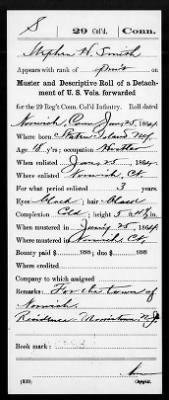 S 29 Col'd. Conn.
Stephen H. Smith
Appears with rank of Priv on
Muster and Descriptive Roll of a Detach-
ment of U. S. Vols. forwarded
for the 29 Reg't Conn. Col'd Infantry. Roll dated
Norwich, Conn Jany 25, 1864.
Where born Staten Island N.Y.
Age 18 y'rs; occupation Hostler
When enlisted Jany 25, 1864.
Where enlisted Norwich, Ct.
For what period enlisted 3 years.
Eyes black; hair black
Complexion Cold; height 5 ft. in.
When mustered in Jany 25, 1864.
Where mustered in Norwich, Ct.
Bounty paid $ 100; due $ 100
Where credited
Company to which assigned
Remarks: For the town of
Norwich.
Residence Morristown N.J.
Book mark:
(339) Copyist.